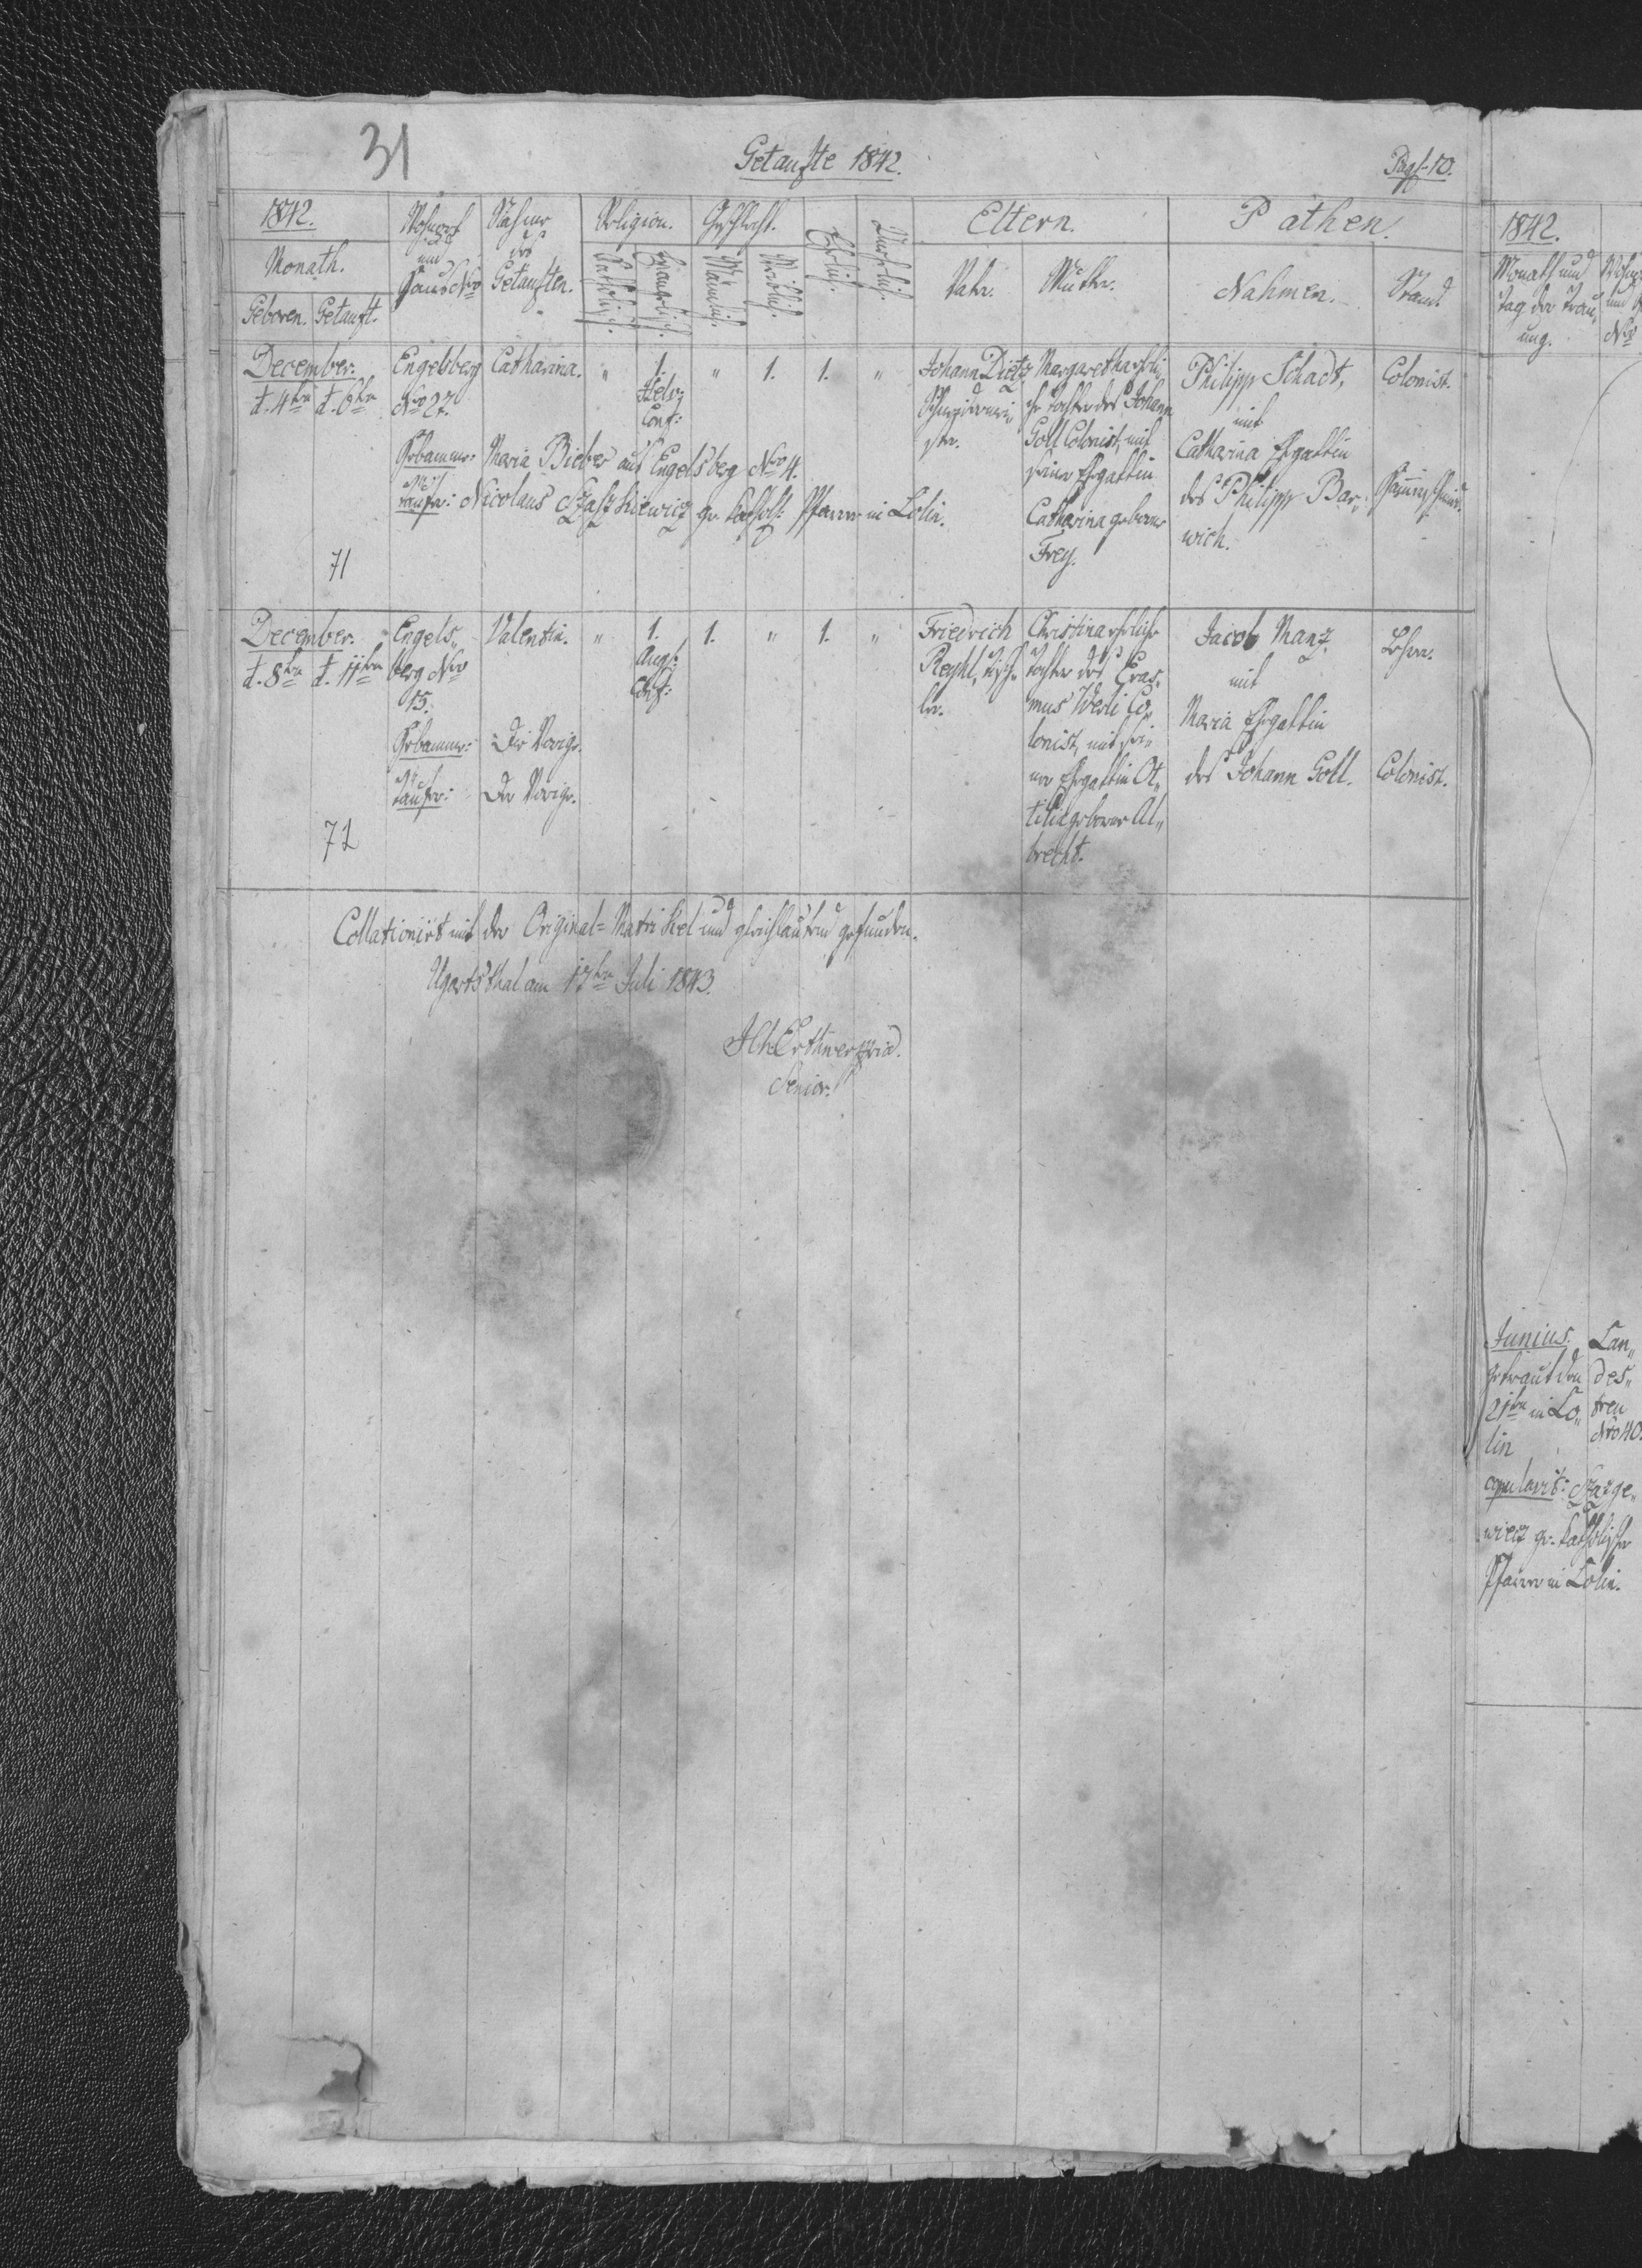 31
Getaufte 1842.
Pag: 10.
1842.
Monath.
Geboren. Getauft.
Wohnort
und
Haus Nro
Nahme
des
Getauften.
Religion.
Katholisch.
Evangelisch.
Geschlecht.
Männlich.
Weiblich.
Ehelich.
Unehelich.
Eltern.
Vater.
Mutter.
Pathen.
Nahmen.
Stand
December.
d. 4ten d. 6ten
Engelsberg
Nro 27.
Catharina.
"
1.
Helv:
Conf:
"
1.
1.
"
Johann Dietz
Schneidermei-
ster.
Margaretha eheli,
che Tochter des Johann
Goll Colonist, mit
seiner Ehgattin
Catharina geborne
Frey.
Philipp Schadt,
mit
Catharina Ehgattin
des Philipp Bar„
wich.
Colonist.
Hebamme: Maria Bieber aus Engelsberg Nro 4.
Taufer: Nicolaus gr. kathol: Pfarrer in Lolin.
71
December.
d. 8ten d. 11ten
Engels„
berg Nro
15.
Valentin.
"
1.
Augs:
Conf:
1.
"
1.
"
Friedrich
Tisch-
ler.
Christina eheliche
Tochter des Eras„
mus Werli Co„
lonist, mit sei„
ner Ehgattin Ot„
tilia geborne Al„
brecht.
Jacob Manz.
mit
Maria Ehgattin
des Johann Goll.
Lehrer.
Colonist.
Hebamme: Die Vorige.
Taufer: Der Vorige.
72
Collationirt mit der Original-Matrikel und gleichlautend gefunden.
Ugartsthal am 17ten Juli 1843.
Senior.
1842.
Monath und
Tag der Trau„
ung.
Junius.
getraut den
21ten in Lo„
lin
Lan„
des„
treu
Nro 40.
copulavit:
gr. katholischer
Pfarrer in Lolin.